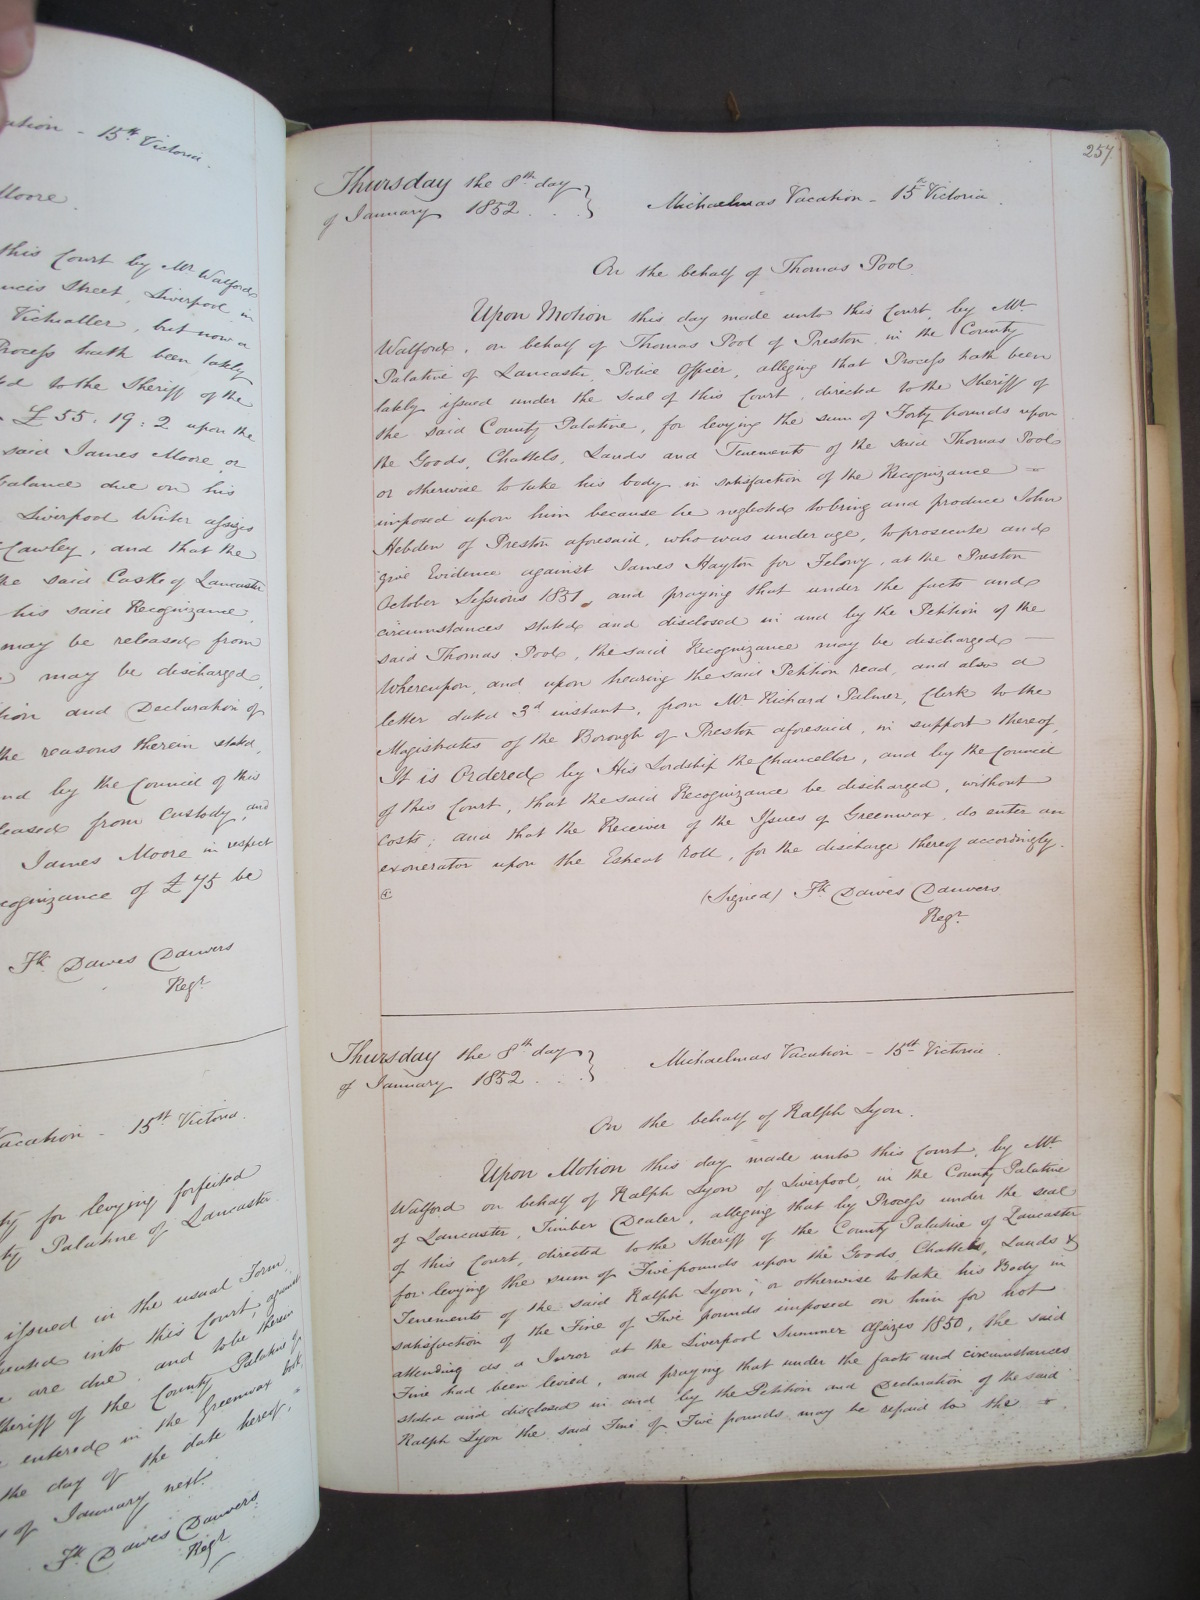 ation - 15th Victoria.
Moore.
this Court by Mr Walford
ncis Street, Liverpool in
Victualler, but now a
Process hath been lately
ed to the Sheriff of the
£55:19:2 upon the
said James Moore, or
balance due on his
Liverpool Winter assizes
Cawley, and that the
the said Castle of Lancaster
his said Recognizance
may be released from
may be discharged,
tion and Declaration of
the reasons therein stated,
nd by the Council of this
leased from custody, and
James Moore in respect
cognizance of £75 be
Fk Dawes Danvers
Regr
Vacation - 15th Victoria.
ty for levying forfeited
ty Palatine of Lancaster
issued in the usual Form
into this Court, against
are due and to be therein
Sheriff of the County Palatine of
entered in the Greenwax book,
the day of the date hereof,
of January next.
Fk Dawes Danvers
Regr
257.
Thursday the 8th day
of January 1852 . . . } Michaelmas Vacation - 15th Victoria.
On the behalf of Thomas Pool.
Upon Motion this day made unto this Court, by Mr.
Walford, on behalf of Thomas Pool of Preston, in the County
Palatine of Lancaster, Police Officer, alleging that Process hath been
lately issued under the seal of this Court, directed to the Sheriff of
the said County Palatine, for levying the sum of Forty pounds upon
the Goods, Chattels, Lands and Tenements of the said Thomas Pool
or otherwise to take his body in satisfaction of the Recognizance =
imposed upon him because he neglected to bring and produce John
Hebden of Preston aforesaid, who was under age, to prosecute and
give Evidence against James Hayton for Felony, at the Preston
October Sessions 1851, and praying that under the facts and
circumstances stated and disclosed in and by the Petition of the
said Thomas Pool, the said Recognizance may be discharged —
Whereupon, and upon hearing the said Petition read, and also a
letter dated 3d instant, from Mr Richard Palmer, Clerk to the
Magistrates of the Borough of Preston aforesaid, in support thereof,
It is Ordered by His Lordship the Chancellor, and by the Council
of this Court, that the said Recognizance be discharged, without
costs; and that the Receiver of the Issues of Greenwax, do enter an
exonerator upon the Estreat roll, for the discharge thereof accordingly.
(Signed) Fk Dawes Danvers
Regr.
Thursday the 8th day
of January 1852 . . . } Michaelmas Vacation - 15th Victoria.
On the behalf of Ralph Lyon.
Upon Motion this day made unto this Court, by Mr
Walford on behalf of Ralph Lyon of Liverpool, in the County Palatine
of Lancaster, Timber Dealer, alleging that by Process under the seal
of this Court, directed to the Sheriff of the County Palatine of Lancaster
for levying the sum of Five pounds upon the Goods Chattels, Lands &
Tenements of the said Ralph Lyon; or otherwise to take his Body in
satisfaction of the Fine of Five pounds imposed on him for not
attending as a Juror at the Liverpool Summer Assizes 1850, the said
Fine had been levied, and praying that under the facts and circumstances
stated and disclosed in and by the Petition and Declaration of the said
Ralph Lyon the said Fine of Five pounds may be repaid to the =